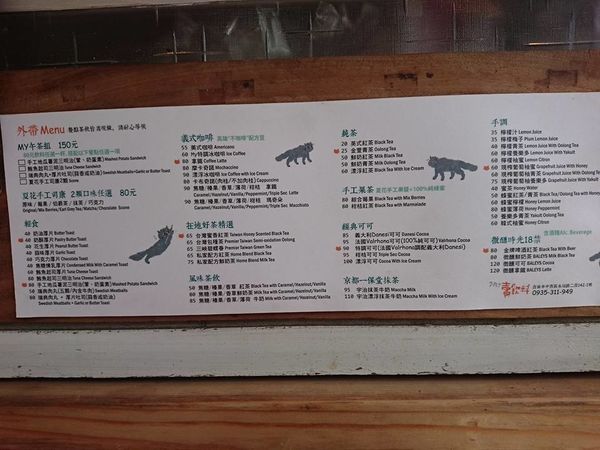 外帶Menu 餐點茶飲皆真現做, 請耐心等候
MY午茶組 150元
80元飲料任選一杯, 搭配以下餐點任選一項
手工地瓜薯泥三明治(薯、奶蛋素) Mashed Potato Sandwich
鮪魚起司三明治 Tuna Cheese Sandwich
瑞典肉丸+厚片吐司(蒜香或奶油) Swedish Meatballs+Garlic or Butter Toast
夏花手工司康2顆 Scone
夏花手工司康 2顆口味任選 80元
原味 / 蔓莓 / 伯爵茶 / 抹茶 / 巧克力
Original/Mix Berries/Earl Grey Tea/Matcha/Chocolate Scone
輕食
40 奶油厚片 Butter Toast
40 奶酥厚片 Pastry Butter Toast
40 花生厚片 Peanut Butter Toast
40 蒜味厚片 Garlic Toast
40 巧克力厚片 Chocolate Toast
60 鮪魚起司厚片 Tuna Cheese Toast
60 鮪魚起司三明治 Tuna Cheese Toast
80 手工地瓜薯泥三明治(薯、奶蛋素) Mashed Potato Sandwich
50 瑞典肉丸
80 瑞典肉丸 + 厚片吐司(蒜香或奶油)
Swedish Meatballs + Garlic or Butter Toast
義式咖啡 高雄"不咖啡"配方豆
55 美式咖啡 Americano
60 My特調冰咖啡 Ice Coffee
80 拿鐵 Coffee Latte
90 漂浮冰咖啡 Ice Coffee with Ice Cream
80 卡布奇諾(肉桂/不加肉桂) Cappuccino
90 焦糖/榛果/香草/薄荷/柑桔 拿鐵
Caramel/Hazelnut/Vanilla/Peppermint/Triple Sec Latte
90 焦糖/榛果/香草/薄荷/柑桔 瑪奇朵
Caramel/Hazelnut/Vanilla/Peppermint/Triple Sec Macchiato
在地好茶精選
65 台灣蜜香紅茶 Taiwan Honey Scented Black Tea
65 台灣包種茶 Premium Taiwan Semi-oxidation Oolong
65 三峽碧螺春 Premier Taiwan Green Tea
65 私家配方紅茶 Home Blend Black Tea
65 私家配方鮮奶茶 Home Blend Milk Tea
風味茶飲
50 焦糖/榛果/香草 紅茶 Black Tea with Caramel/Hazelnut/Vanilla
80 焦糖/榛果/香草鮮奶茶 Milk Tea with Caramel/Hazelnut/Vanilla
90 焦糖/榛果/香草/薄荷 牛奶 Milk with Caramel/Hazelnut/Vanilla
純茶
20 英式紅茶 Black Tea
25 金萱青茶 Oolong Tea
50 鮮奶紅茶 Milk Tea
50 鮮奶青茶 Milk Oolong Tea
60 漂浮紅茶 Black Tea with Ice Cream
手工果茶 夏花手工果醬+100%純蜂蜜
80 綜合莓果 Black Tea with Mix Berries
80 桔香 Black Tea with Marmalade
經典可可
85 義大利Danesi可可 Danesi Cocoa
95 法國Valrhona可可(100%純可可) Valrhona Cocoa
90 特調可可(法國Valrhona調配義大利Danesi)
95 柑桔可可 Triple Sec Cocoa
100 漂浮可可 Cocoa With Ice Cream
京都一保堂抹茶
95 宇治抹茶牛奶 Maccha Milk
110 宇治漂浮抹茶牛奶 Maccha Milk With Ice Cream
手調
35 檸檬汁 Lemon Juice
40 檸檬梅子 Plum Lemon Juice
40 檸檬青茶 Lemon Juice With Oolong Tea
50 檸檬養樂多 Lemon Juice With Yakult
40 檸檬香茅 Lemon Citron
40 現榨葡萄柚蜂蜜 Grapefruit Honey Juice
50 現榨葡萄柚青茶 Grapefruit Juice With Oolong Tea
60 現榨葡萄柚養樂多 Grapefruit Juice With Yakult
30 蜂蜜 Honey Water
30 蜂蜜紅茶/青茶 Black Tea/Oolong Tea with Honey
40 蜂蜜檸檬 Honey Lemon Juice
50 蜂蜜香茅 Honey Citron
50 蜂蜜薄荷 Honey Peppermint
50 養樂多青茶 Yakult Oolong Tea
20 金萱青茶 Oolong Tea
微醺時光18禁 含酒精Alc. Beverage
80 金啤啤酒紅茶 Black Tea With Beer
80 微醺鮮奶茶 BAILEYS Milk Black Tea
120 微醺可可 BAILEYS Cocoa
120 微醺拿鐵 BAILEYS Latte
0935-311-949